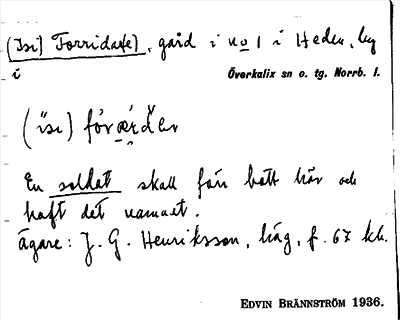 (Isi) Forridare), gård i no 1 i Heden, by
i Överkalix sn o. tg. Norrb. l.
En soldat skall förr bott här och
haft det namnet.
Ägare: J. G. Henriksson, häg, f. 67 kh.
EDVIN BRÄNNSTRÖM 1936.